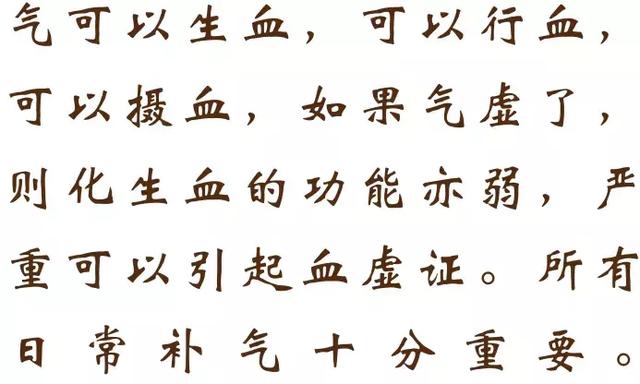 气可以生血，可以行血，
可以摄血，如果气虚了，
则化生血的功能亦弱，严
重可以引起血虚证。所有
日常补气十分重要。